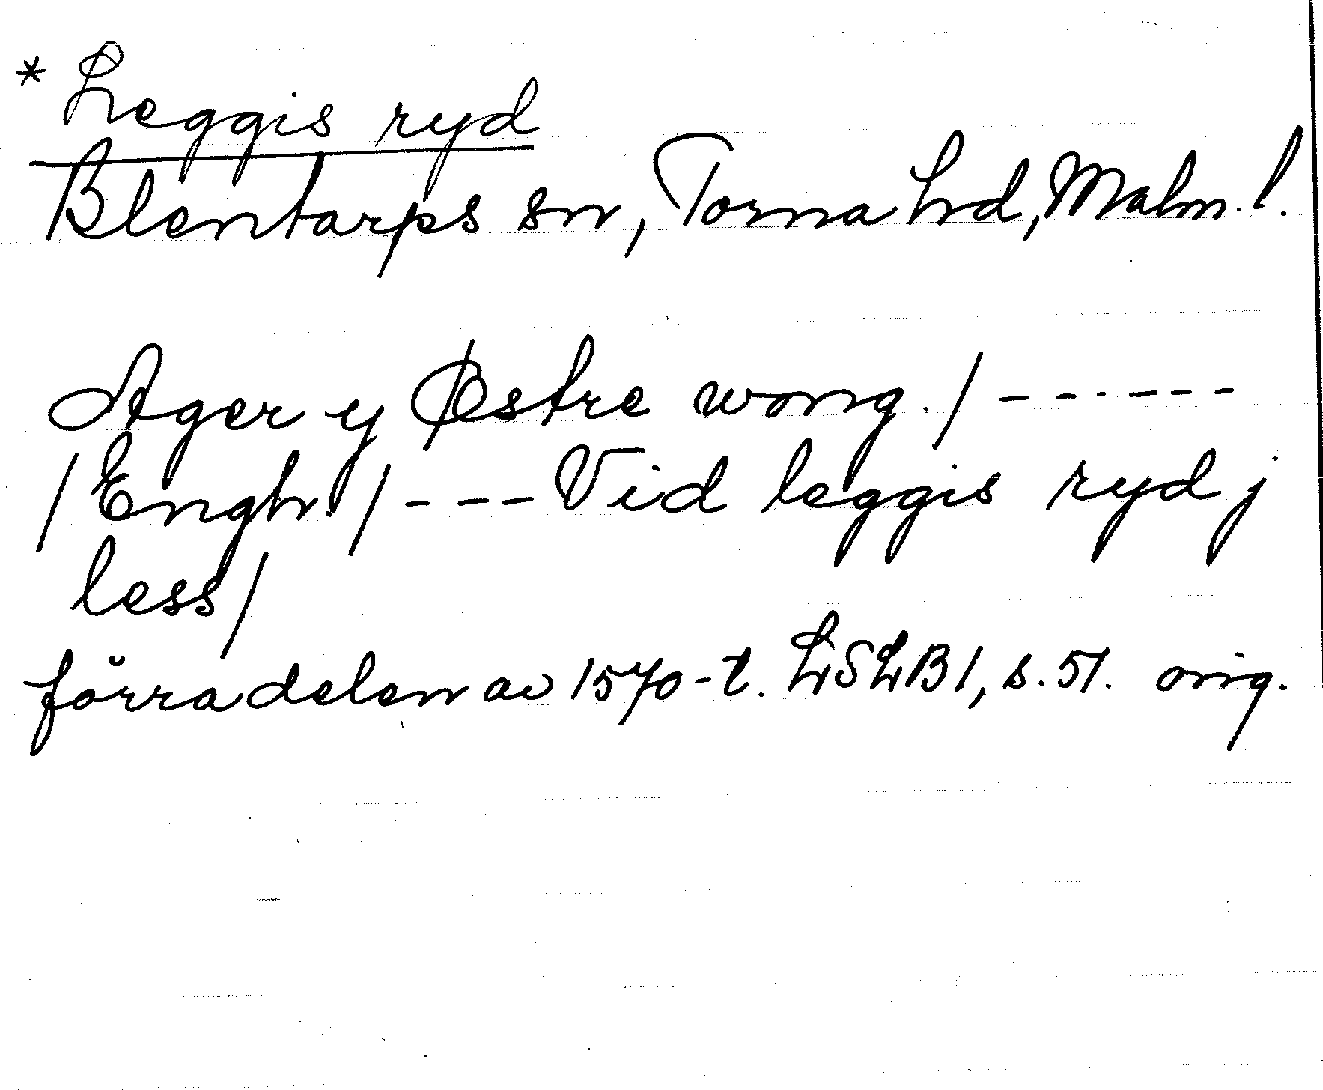 * Leggis ryd
Blentarps sn, Torna hd, Malm. l.
Ager y Østre wong. / ------
/ Engh / --- Vid leggis ryd j
less /
förra delen av 1570-t. LSLB 1, s. 51. orig.